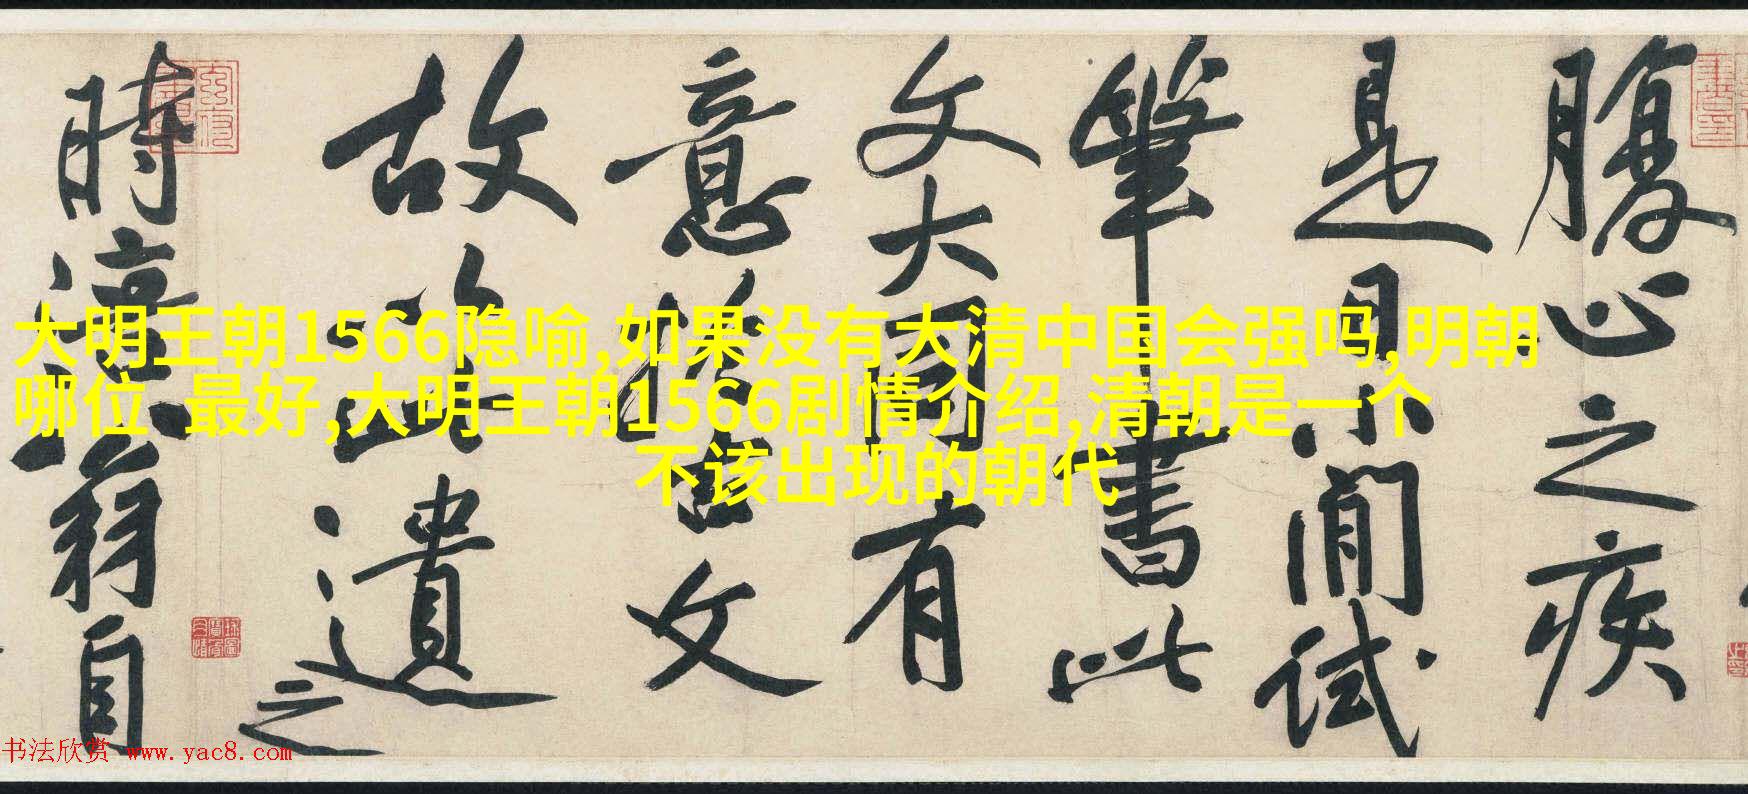 腹心之疾
是日小閒試
筆書此
文大同有
意於古文
故以此遺之
時涪翁自
大明王朝1566隐喻,如果没有大清中国会强吗,明朝
哪位 最好,大明王朝1566剧情介绍,清朝是一个
不该出现的朝代
书法欣赏 www.yac8.com